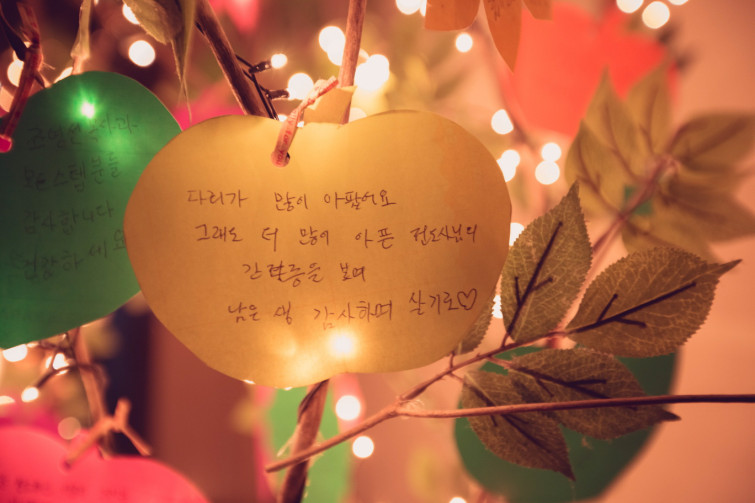 다리가 많이 아팠어요
그래도 더 많이 아픈 전도사님의
간렬증을 보며
남은 생 감사하며 살기로♡
스탭분들
감사합니다